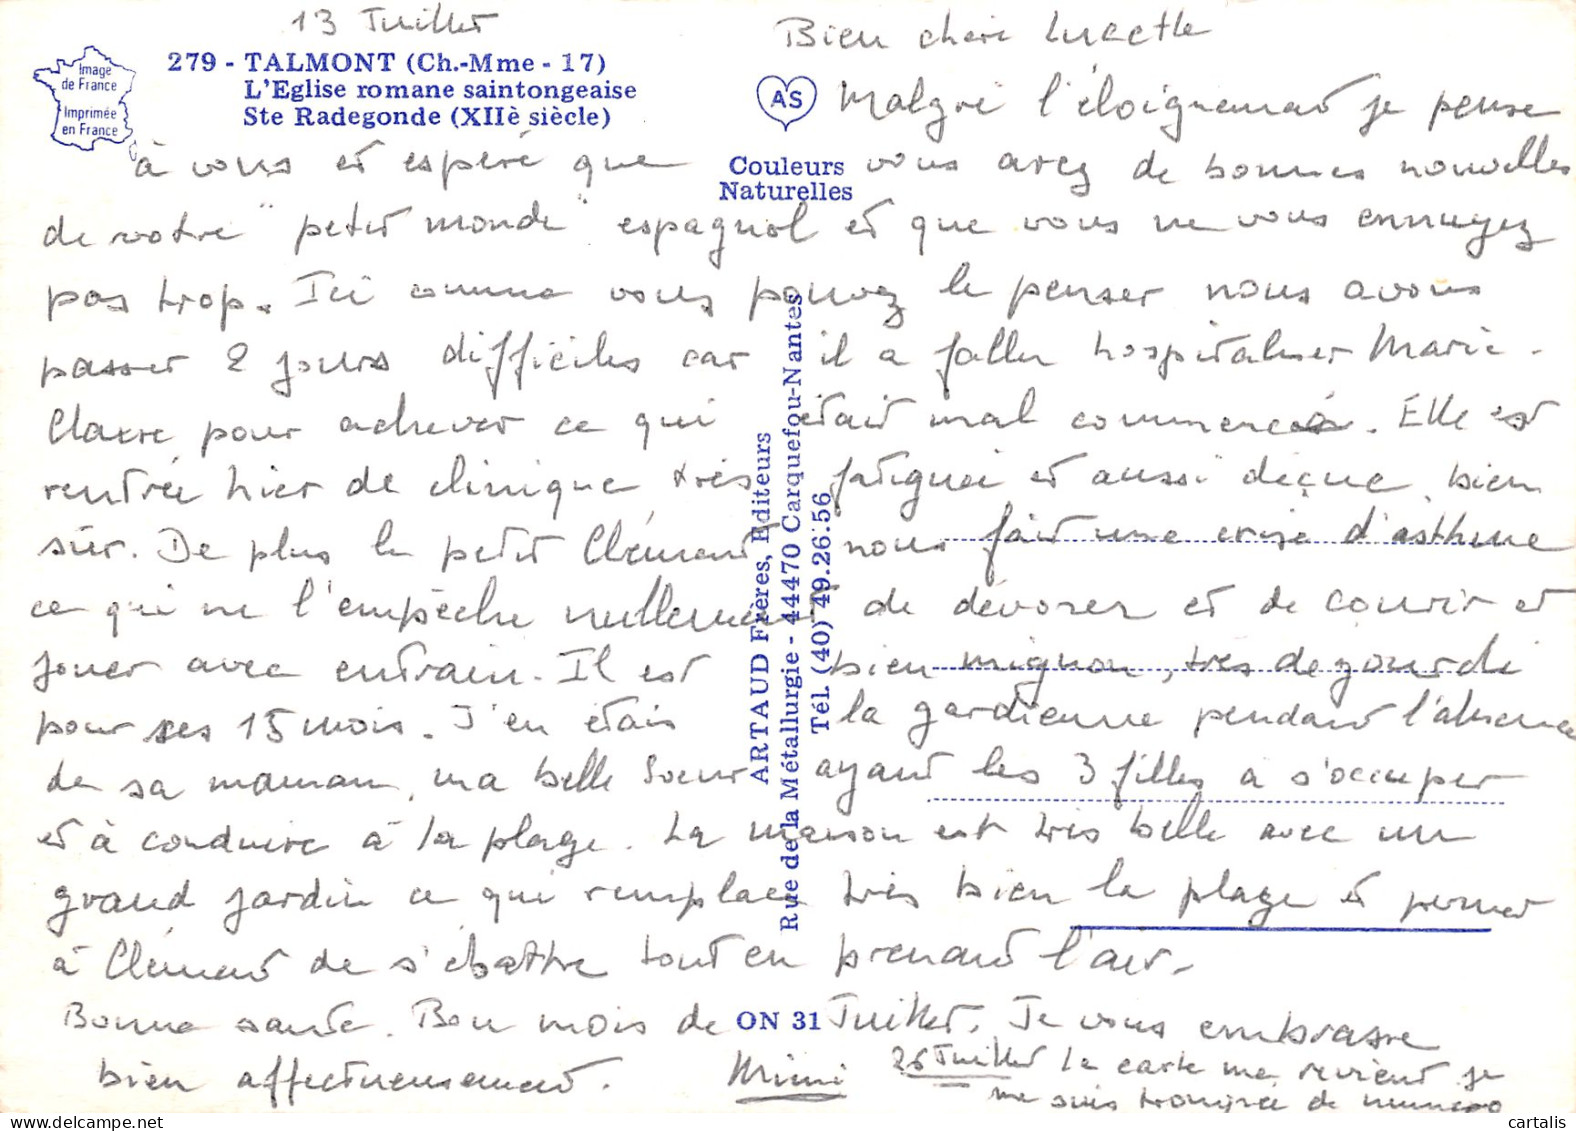 13 Juillet
Bien chère Lucette
Image
de France
Imprimée
en France
279 - TALMONT (Ch.-Mme - 17)
L'Eglise romane saintongeaise
Ste Radegonde (XIIè siècle)
AS
Couleurs
Naturelles
Malgré l'éloignement je pense
à vous et espère que vous avez de bonnes nouvelles
de votre "petit monde" espagnol et que vous ne vous ennuyez
pas trop. Ici comme vous pouvez le penser nous avons
passer 2 jours difficiles car il a fallu hospitaliser Marie-
Claire pour achever ce qui était mal commencé. Elle est
rentrée hier de clinique très fatiguée et aussi déçue, bien
sûr. De plus le petit Clément nous fait une crise d'asthme
ce qui ne l'empêche nullement de dévorer et de courir et
jouer avec entrain. Il est bien mignon, très dégourdi
pour ses 15 mois. J'en étais la gardienne pendant l'absence
de sa maman, ma belle soeur ayant les 3 filles à s'occuper
et à conduire à la plage. La maison est très belle avec un
grand jardin ce qui remplace très bien la plage et permet
à Clément de s'ébattre tout en prenant l'air.
Bonne santé. Bon mois de Juillet. Je vous embrasse
bien affectueusement. Mimi
26 Juillet la carte me revient je
me suis trompée de numéro
ARTAUD Frères, Editeurs
Rue de la Métallurgie - 44470 Carquefou-Nantes
Tél. (40) 49.26.56
ON 31
cartalis